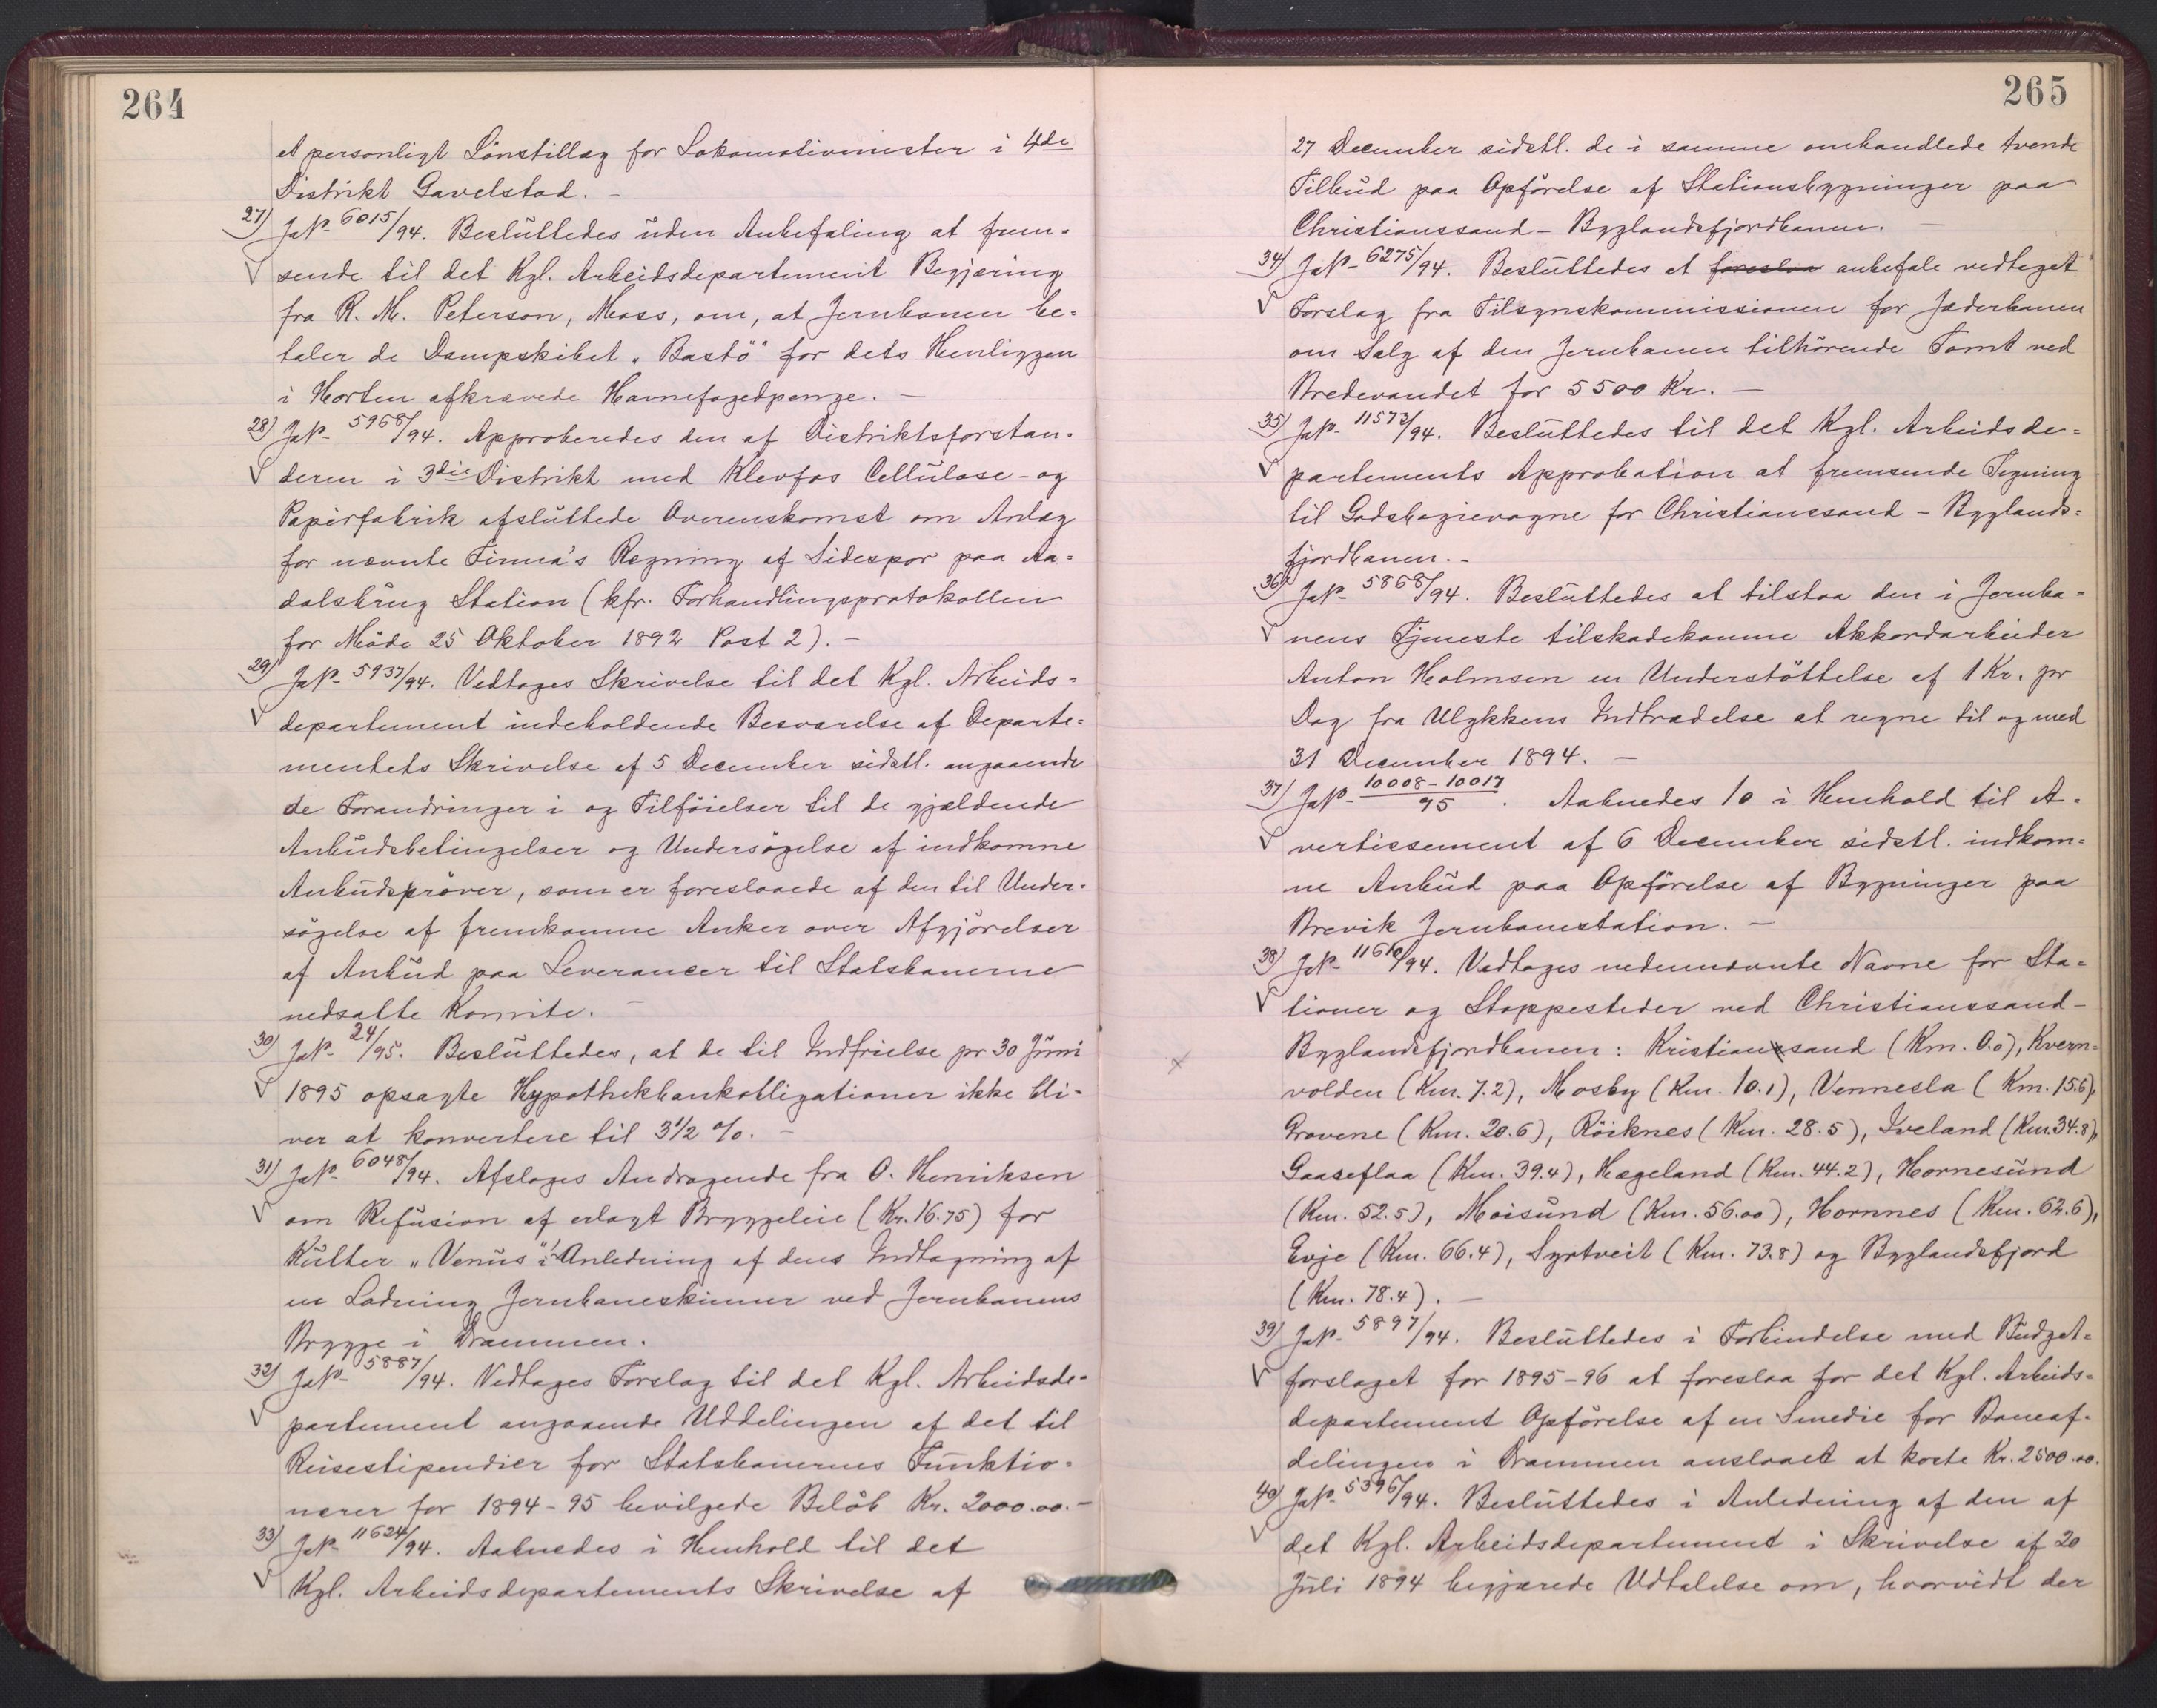 264
et personligt Lönstillæg for Lokomotivmester i 4de
Distrikt Gavelstad. –
27) JNo 6015/94. Besluttedes uden Anbefaling at frem=
sende til det Kgl. Arbeidsdepartement Begjæring
fra R. M. Peterson, Moss, om, at Jernbanen be=
taler de Dampskibet „Bastö" for dets Henliggen
i Horten afkrævede Havnefogedpenge. –
28) JNo 5968/94. Approberedes den af Distriktsforstan=
deren i 3die Distrikt med Klevfos Cellulose- og
Papirfabrik afsluttede Overenskomst om Anlæg
for nævnte Firma's Regning af Sidespor paa Aa=
dalsbrug Station (kfr. Forhandlingsprotokollen
for Möde 25 Oktober 1892 Post 2). –
29) JNo 5937/94. Vedtoges Skrivelse til det Kgl. Arbeids=
departement indeholdende Besvarelse af Departe=
mentets Skrivelse af 5 December sidstl. angaaende
de Forandringer i og Tilföielser til de gjældende
Anbudsbetingelser og Undersögelse af indkomne
Anbudspröver, som er foreslaaede af den til Under=
sögelse af fremkomne Anker over Afgjörelser
af Anbud paa Leverancer til Statsbanerne
nedsatte Komite. –
30) JNo 24/95. Besluttedes, at de til Indfrielse pr 30 Juni
1895 opsagte Hypothekbankobligationer ikke bli=
ver at konvertere til 3½ %. –
31) JNo 6048/94. Afsloges Andragende fra O. Henriksen
om Refusion af erlagt Bryggeleie (Kr. 16.75) for
Kutter „Venus" i Anledning af dens Indtagning af
en Ladning Jernbaneskinner ved Jernbanens
Brygge i Drammen.
32) JNo 5887/94. Vedtoges Forslag til det Kgl. Arbeidsde=
partement angaaende Uddelingen af det til
Reisestipendier for Statsbanernes Funktio=
nærer for 1894-95 bevilgede Belöb Kr. 2000.00. –
33) JNo 11624/94. Aabnedes i Henhold til det
Kgl. Arbeidsdepartements Skrivelse af
265
27 December sidstl. de i samme omhandlede tvende
Tilbud paa Opförelse af Stationsbygninger paa
Christianssand – Byglandsfjordbanen. –
34) JNo 6275/94. Besluttedes at foreslaa anbefale vedtaget
Forslag fra Tilsynskommissionen for Jæderbanen
om Salg af den Jernbanen tilhörende Tomt ved
Bredevandet for 5500 Kr. –
35) JNo 11573/94. Besluttedes til det Kgl. Arbeidsde=
partements Approbation at fremsende Tegning
til Godsbogievogne for Christianssand – Byglands=
fjordbanen. –
36) JNo 5868/94. Besluttedes at tilstaa den i Jernba=
nens Tjeneste tilskadekomne Akkordarbeider
Anton Holmsen en Understöttelse af 1 Kr. pr
Dag fra Ulykkens Indtrædelse at regne til og med
31 December 1894. –
37) JNo 10008 – 10017/95. Aabnedes 10 i Henhold til A=
vertissement af 6 December sidstl. indkom=
ne Anbud paa Opförelse af Bygninger paa
Brevik Jernbanestation. –
38) JNo 11610/94. Vedtoges nedennævnte Navne for Sta=
tioner og Stoppesteder ved Christianssand –
Byglandsfjordbanen: Kristianssand (Km. 0.0), Kvern=
volden (Km. 7.2), Mosby (Km. 10.1), Vennesla (Km. 15.6),
Grovene (Km. 20.6), Röiknes (Km. 28.5), Iveland (Km. 34.8),
Gaaseflaa (Km. 39.4), Hægeland (Km. 44.2), Hornesund
(Km. 52.5), Moisund (Km. 56.00), Hornnes (Km. 62.6),
Evje (Km. 66.4), Syrtveit (Km. 73.8) og Byglandsfjord
(Km. 78.4). –
39) JNo 5897/94. Besluttedes i Forbindelse med Budget=
forslaget for 1895-96 at foreslaa for det Kgl. Arbeids=
departement Opförelse af en Smedie for Baneaf=
delingen i Drammen anslaaet at koste Kr. 2500.00.
40) JNo 5396/94. Besluttedes i Anledning af den af
det Kgl. Arbeidsdepartement i Skrivelse af 20
Juli 1894 begjærede Udtalelse om, hvorvidt der